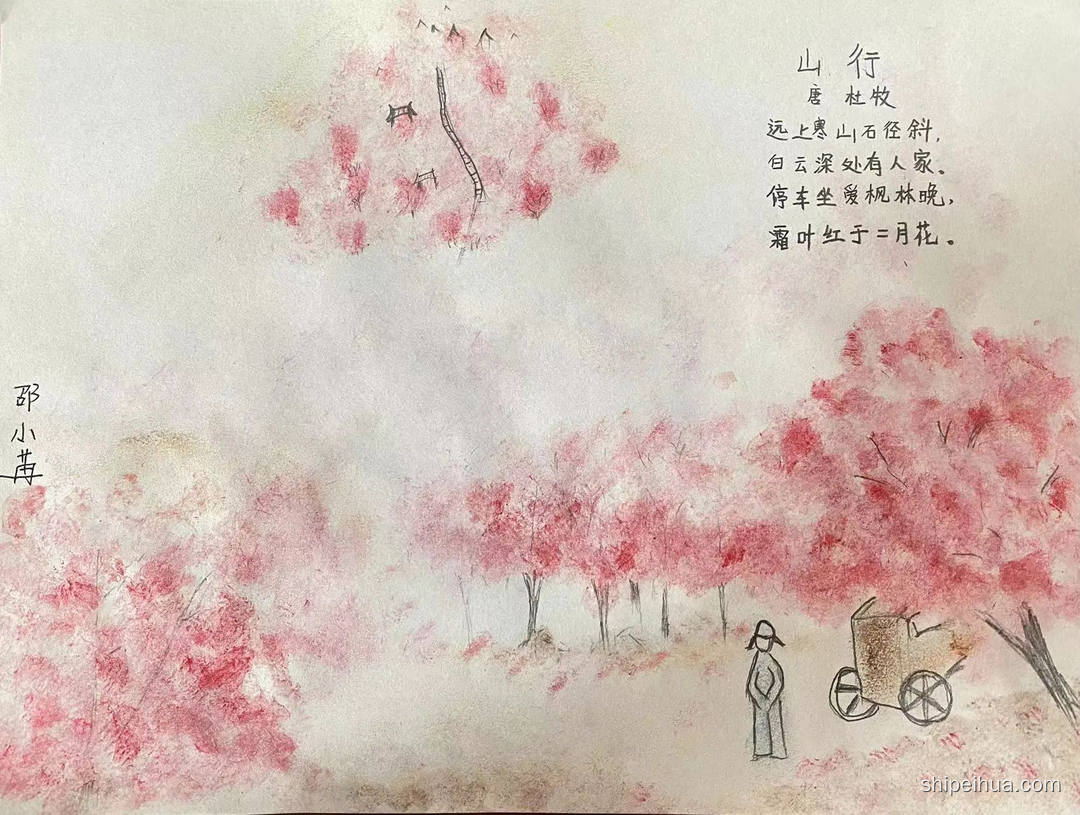 山 行
唐 杜牧
远上寒山石径斜,
白云深处有人家。
停车坐爱枫林晚,
霜叶红于二月花。
邵小苒
shipeihua.com